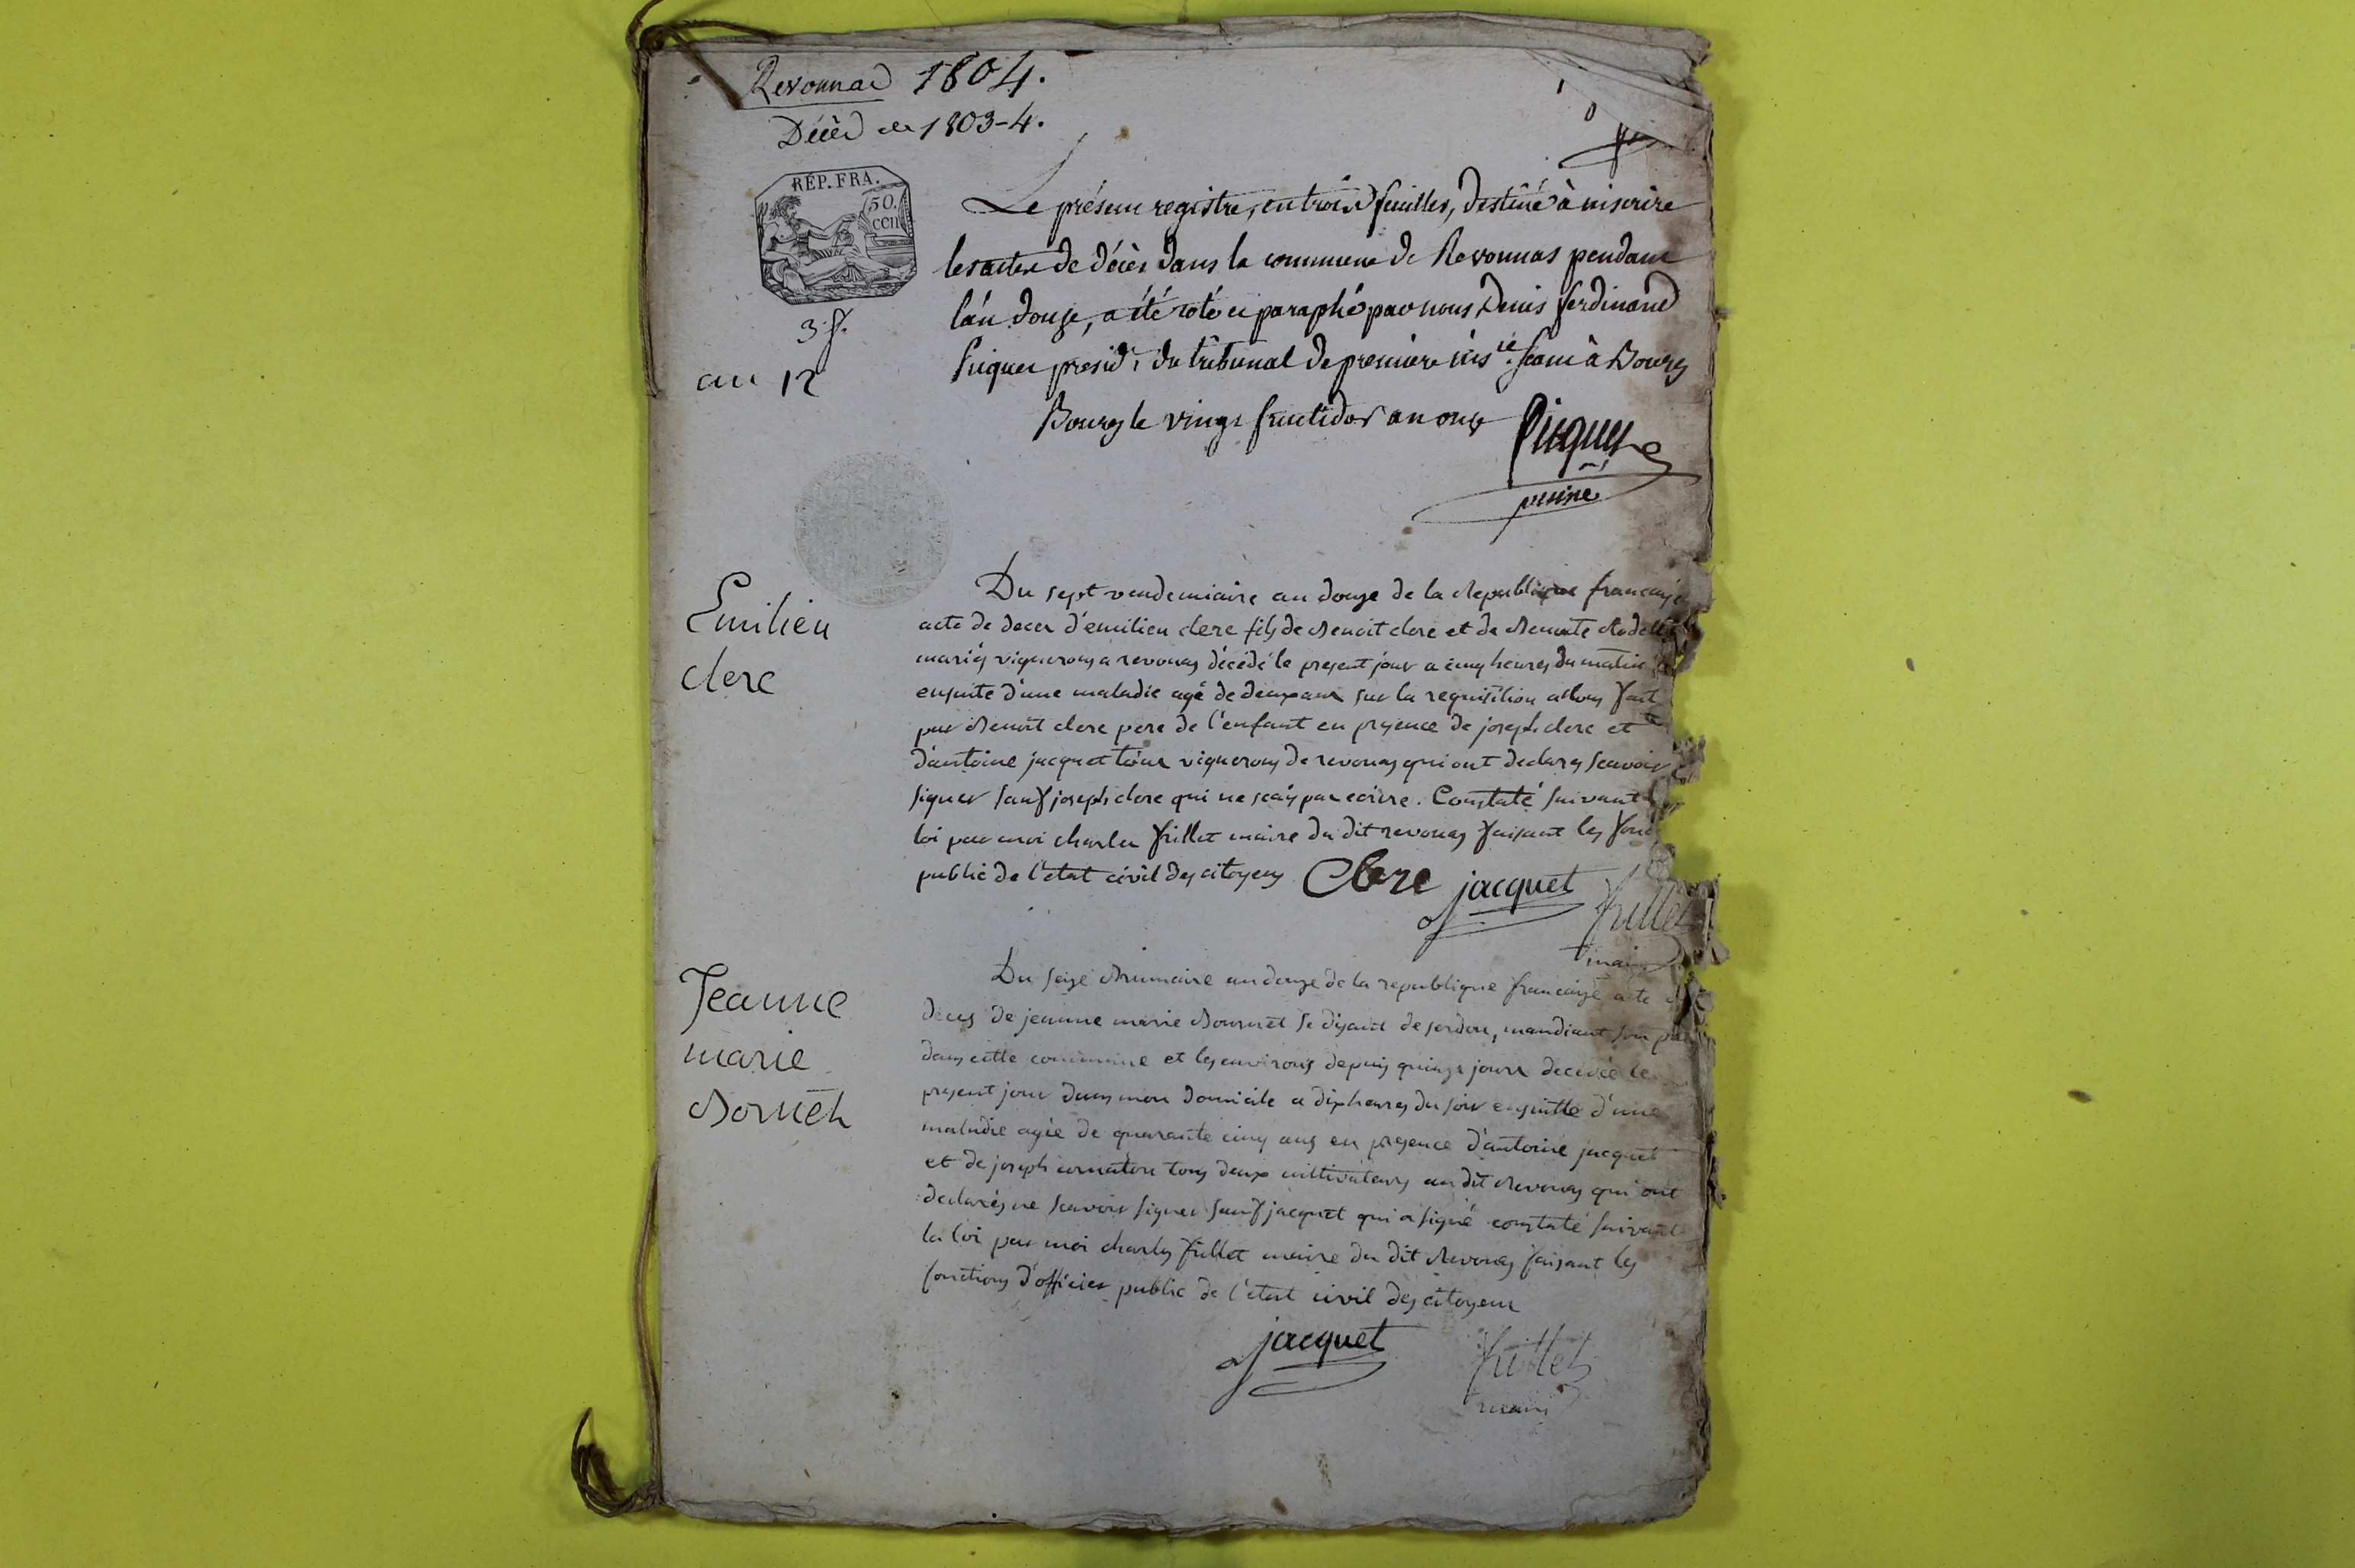 Revonnas 1804.
Décès de 1803-4.
RÉP. FRA.
50.
CEN
3 f.
an 12
Le présent registre, en trois feuilles, destiné à inscrire
les actes de décès dans la commune de Revonnas pendant
l'an douze, a été coté et paraphé par nous Denis ferdinand
Picquet présidt du tribunal de première insce séant à Bourg
Bourg le vingt fructidor an onze
Picquet
Emilien
clerc
Du sept vendemiaire an douze de la Republique francaise
acte de deces d'emilien clerc fils de Benoit clerc et de Benoite
mariés vignerons a revonas décédé le present jour a cinq heures du matin
ensuite d'une maladie agé de deux ans sur la requisition a nous fait
par Benoit clerc pere de l'enfant en presence de joseph clerc et
d'antoine jacquet tous vignerons de revonas qui ont declarés scavoir
signer sauf joseph clerc qui ne scais pas ecrire. Constaté suivant
loi par moi charles frillet maire du dit revonas faisant les
public de l'etat civil des citoyens Clerc jacquet frillet
maire
Jeanne
marie
Bornet
Du seize Brumaire an douze de la republique francaise acte
deces de jeanne marie Bournet se disant de serdon, mandiant son
dans cette commune et les environs depuis quinze jours decedée le
present jour dans mon domicile a dix heures du soir ensuitte d'une
maladie agée de quarante cinq ans en presence d'antoine jacquet
et de joseph cornaton tous deux cultivateurs au dit Revonas qui ont
declarés ne scavoir signer sauf jacquet qui a signé constaté suivant
la loi par moi charles frillet maire du dit Revonas faisant les
fonctions d'officier public de l'état civil des citoyens
jacquet frillet
maire